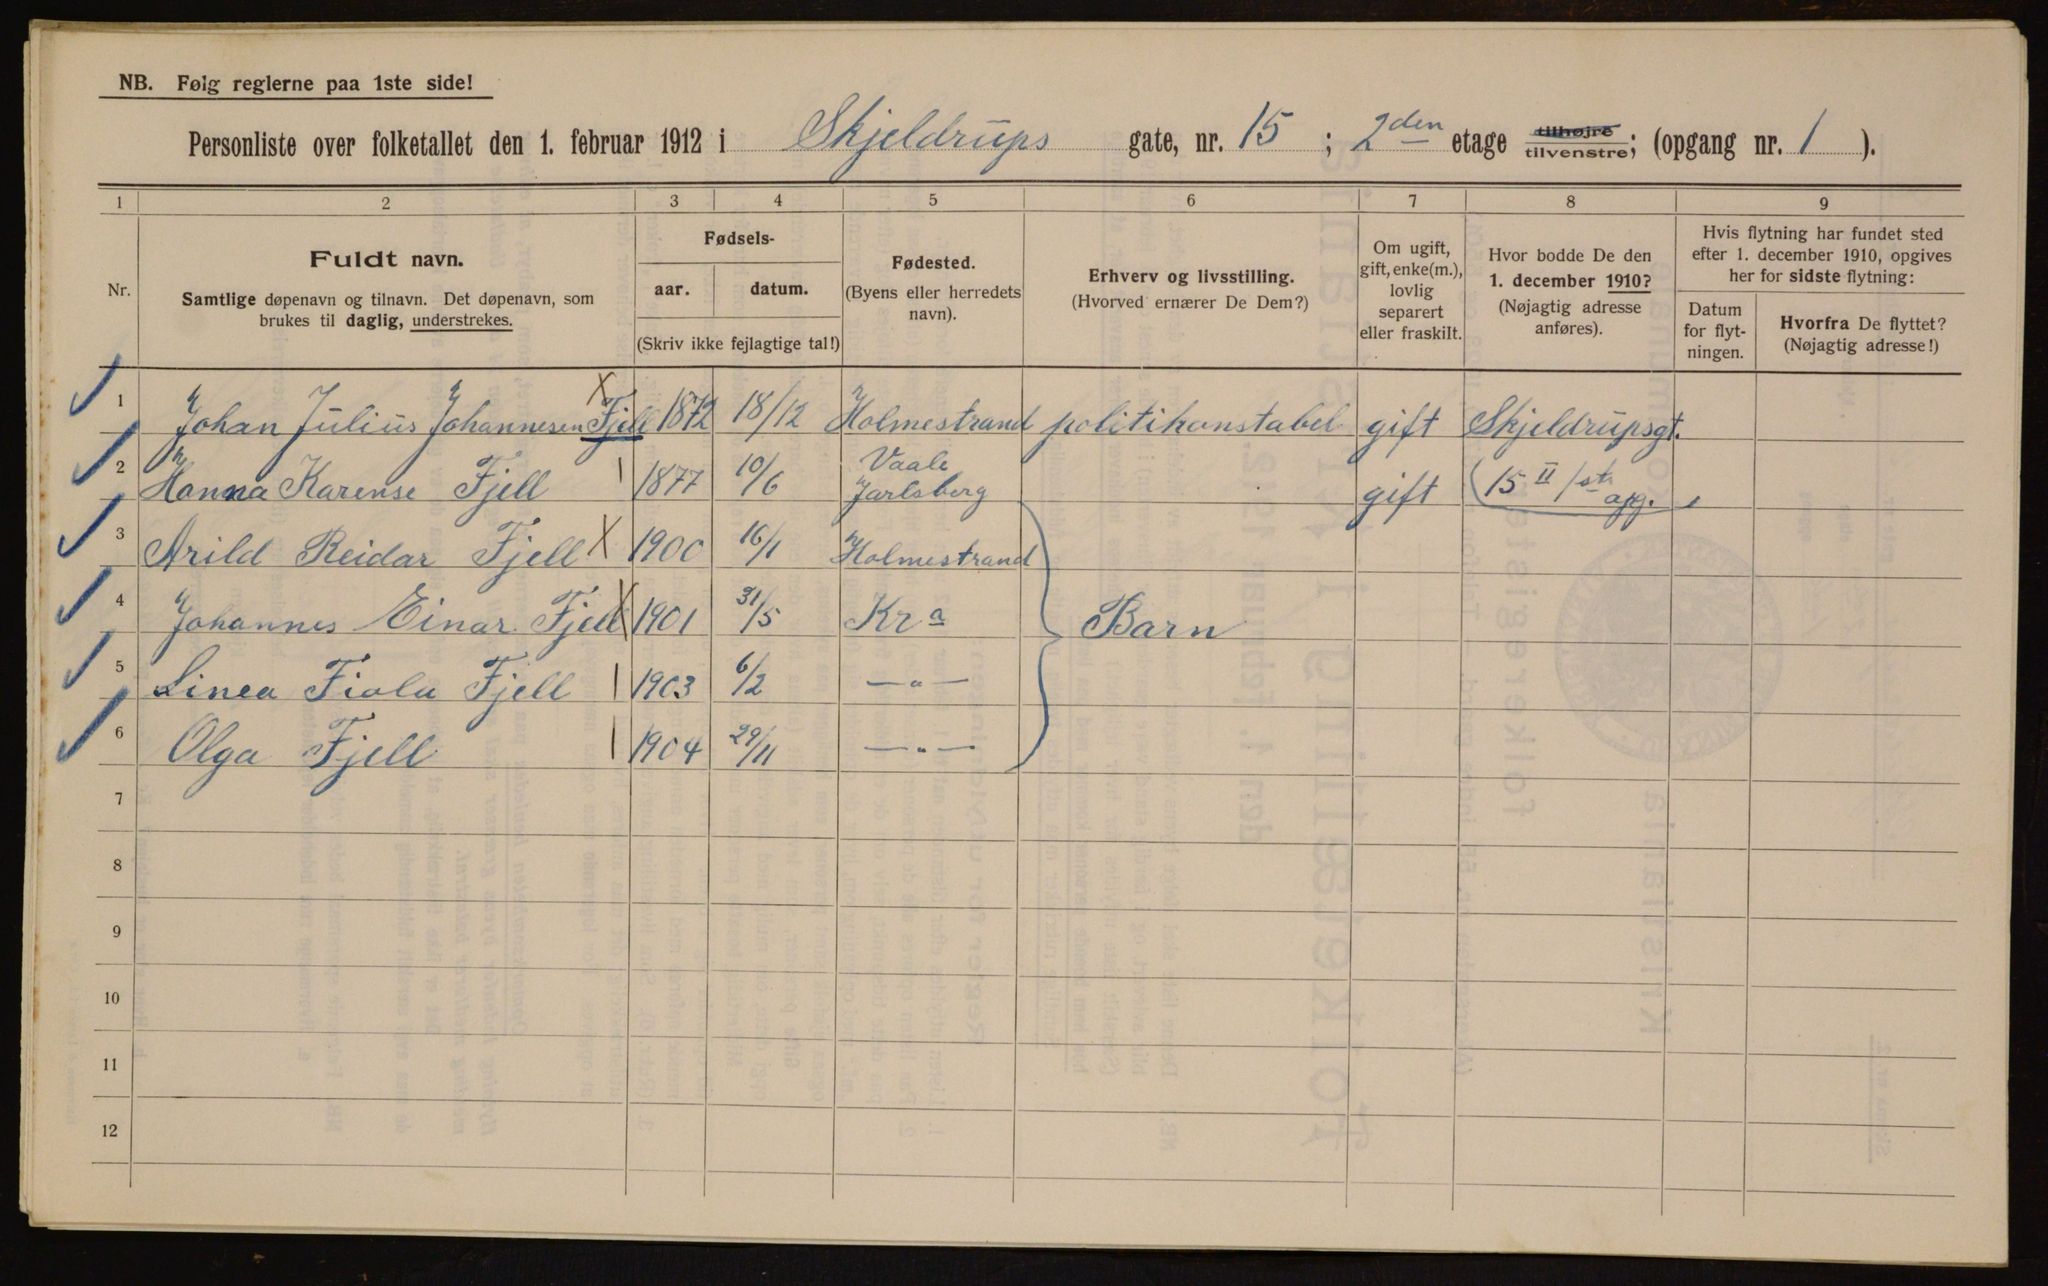 NB. Følg reglerne paa 1ste side!
Personliste over folketallet den 1. februar 1912 i Skjeldrups gate, nr. 15 ; 2den etage tilhøjre tilvenstre; (opgang nr. 1 ).
1 2 3 4 5 6 7 8 9
Nr.
Fuldt navn.
Samtlige døpenavn og tilnavn. Det døpenavn, som
brukes til daglig, understrekes.
Fødsels-
aar. datum.
(Skriv ikke fejlagtige tal!)
Fødested.
(Byens eller herredets
navn).
Erhverv og livsstilling.
(Hvorved ernærer De Dem?)
Om ugift,
gift, enke(m.),
lovlig
separert
eller fraskilt.
Hvor bodde De den
1. december 1910?
(Nøjagtig adresse
anføres).
Hvis flytning har fundet sted
efter 1. december 1910, opgives
her for sidste flytning:
Datum
for flyt-
ningen.
Hvorfra De flyttet?
(Nøjagtig adresse!)
1 Johan Julius Johannesen Fjell X 1872 18/12 Holmestrand politikonstabel gift Skjeldrupsgt.
2 Hanna Karense Fjell 1877 10/6 Vaale Jarlsberg gift 15 II 1ste opg.
3 Arild Reidar Fjell X 1900 16/1 Holmestrand
4 Johannes Einar Fjell X 1901 31/5 Kra Barn
5 Linea Fiola Fjell 1903 6/2 — " —
6 Olga Fjell 1904 29/11 — " —
7
8
9
10
11
12